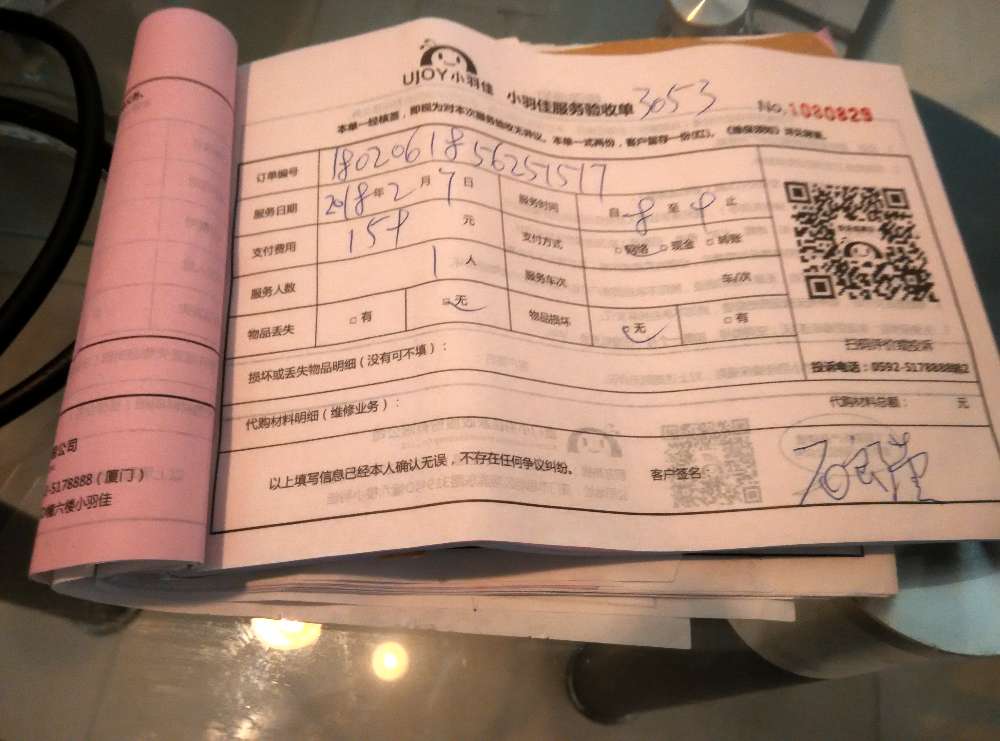 UJOY小羽佳 小羽佳服务验收单 3053 No.1080829
本单一经核署，即视为对本次服务验收无异议。本单一式两份，客户留存一份(红)。
订单编号 1802061856251517
服务日期 2018年2月7日 服务时间 自 8 至 9 止
支付费用 159 元 支付方式 □网络 □现金 □转账
服务人数 1 人 服务车次 车/次
物品丢失 □有 □无 物品损坏 □无 □有
扫码评价或投诉
损坏或丢失物品明细（没有可不填）：
投诉电话：0592-5178888转2
代购材料明细（维修业务）： 代购材料总额： 元
以上填写信息已经本人确认无误，不存在任何争议纠纷。 客户签名：
公司
-5178888（厦门）
六楼小羽佳